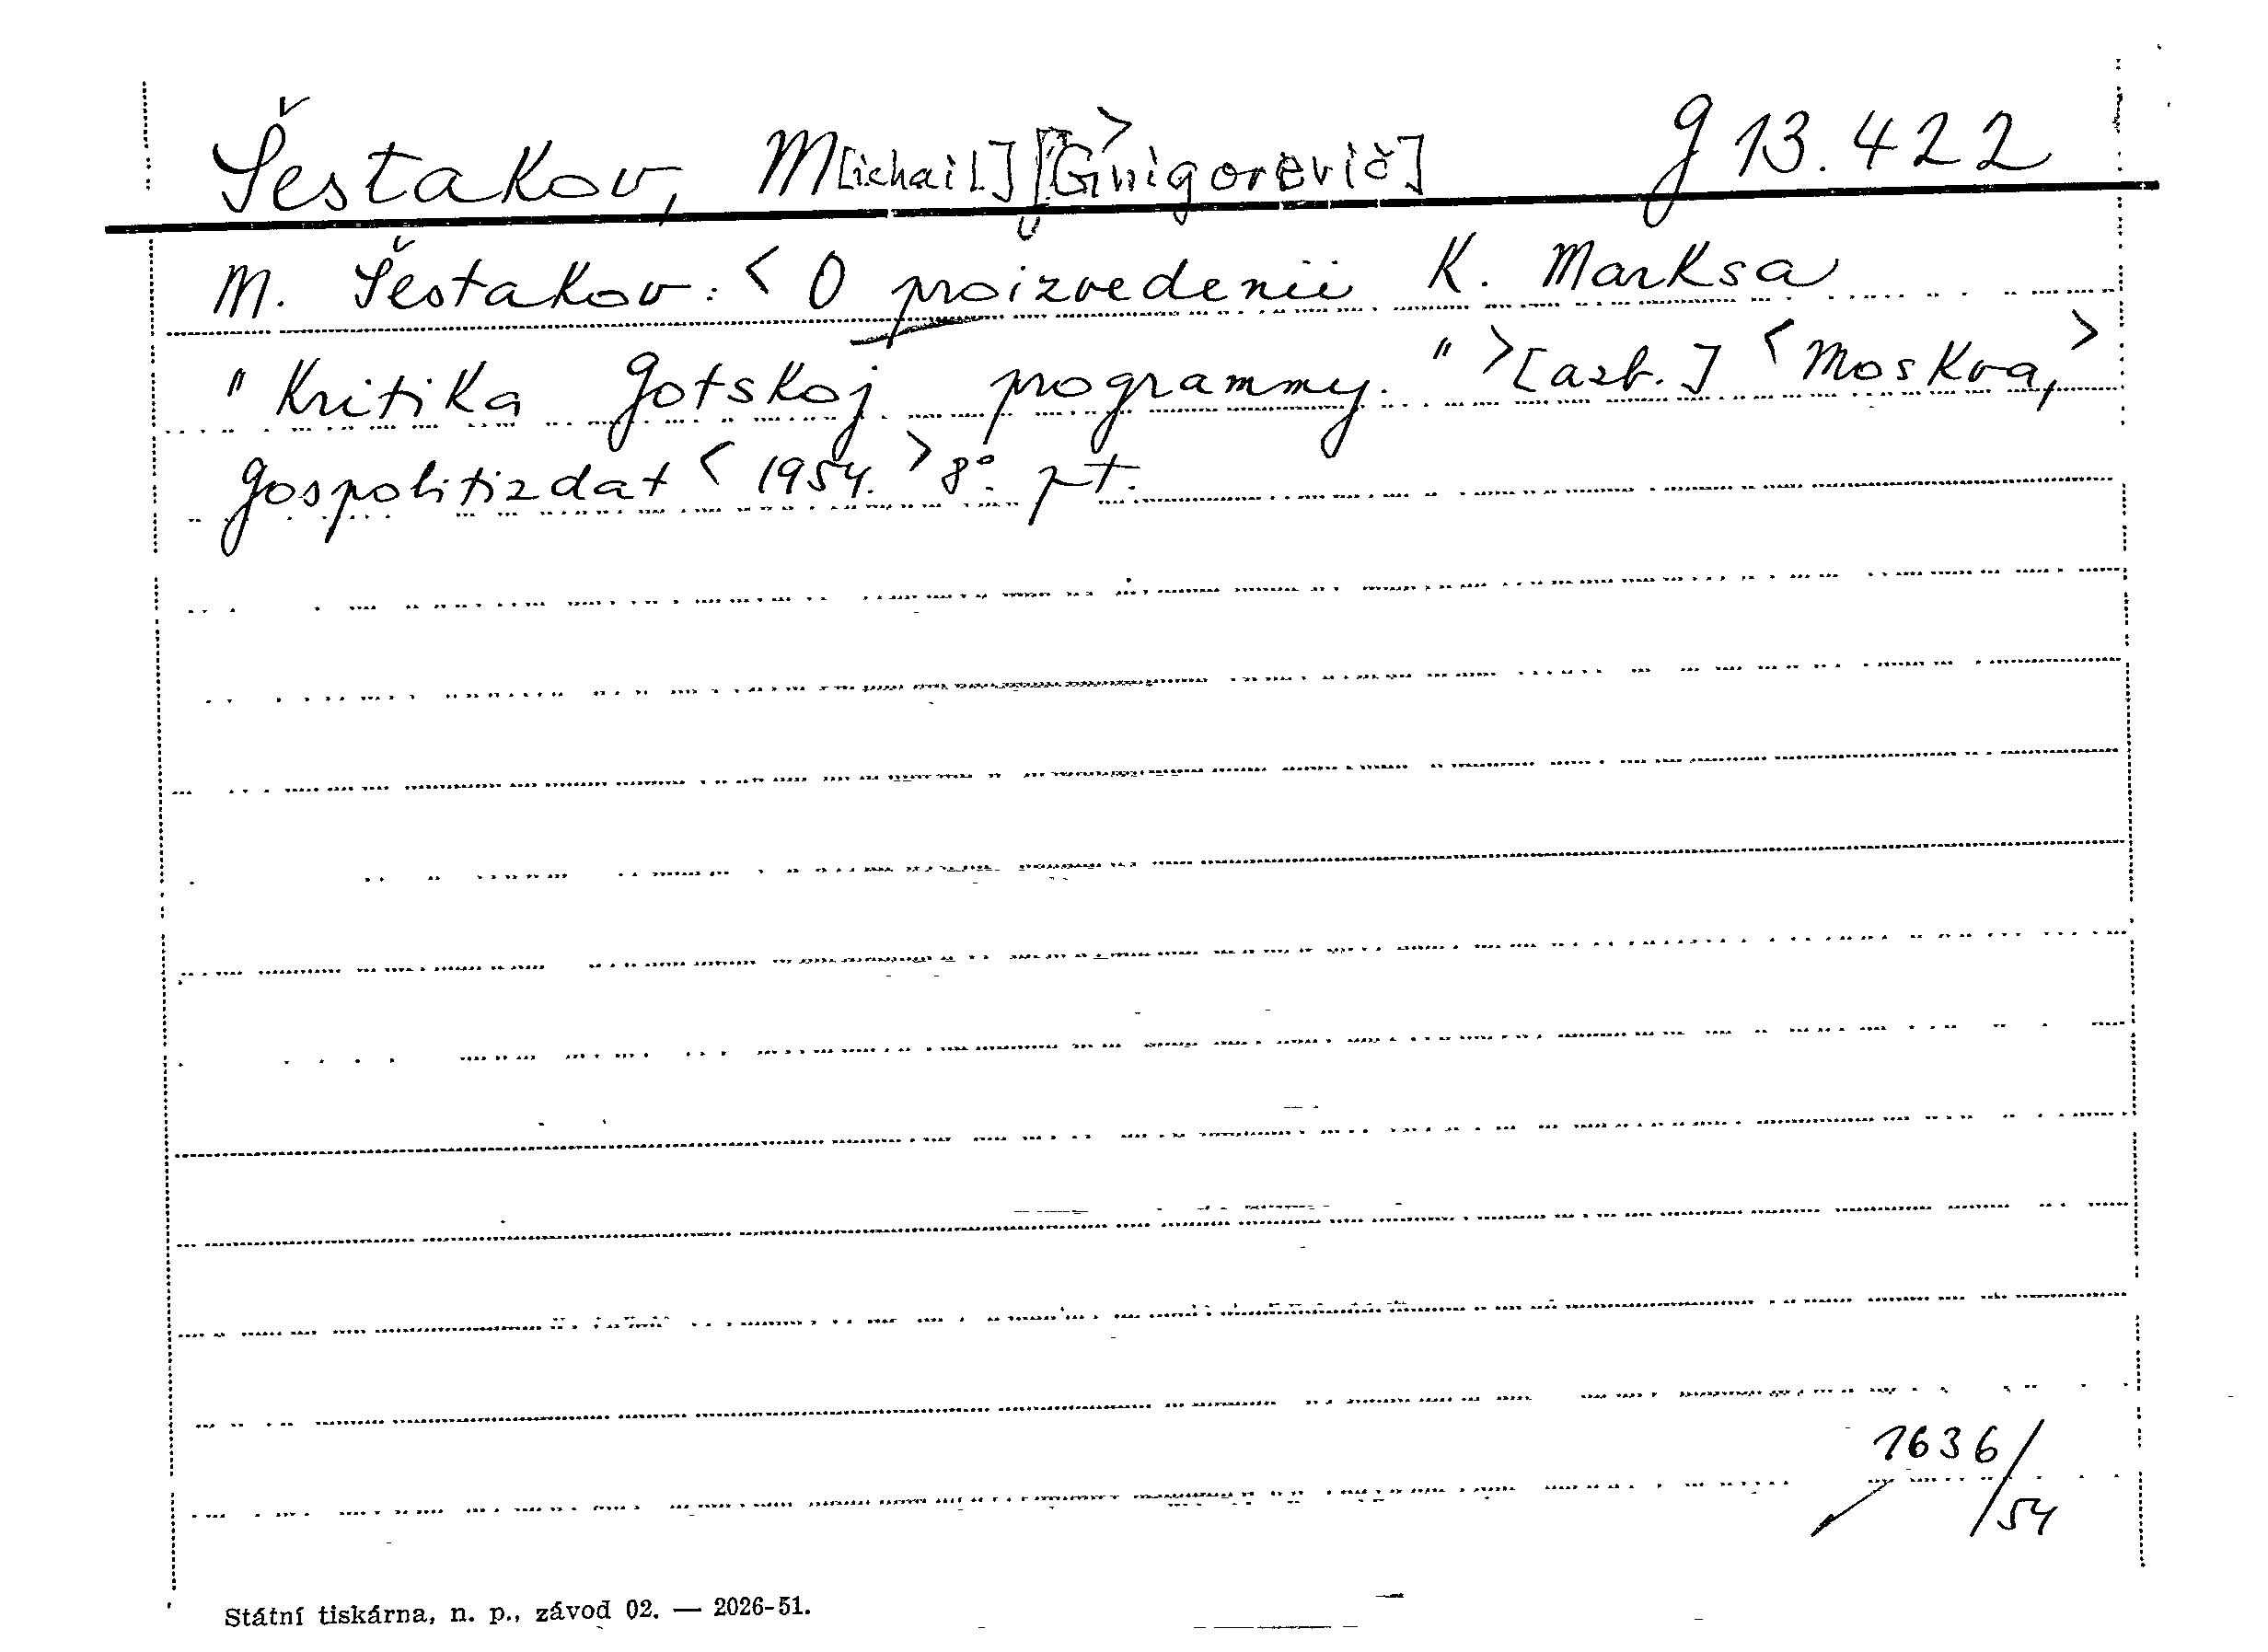 Šestakov, M[ichail] [Grigorevič] g 13.422
M. Šestakov: < O proizvedenii K. Marksa
"Kritika Gotskoj programmy." > [azb.] < Moskva, >
Gospolitizdat < 1954. > 8°. pt.
1636/54
Státní tiskárna, n. p., závod 02. — 2026-51.